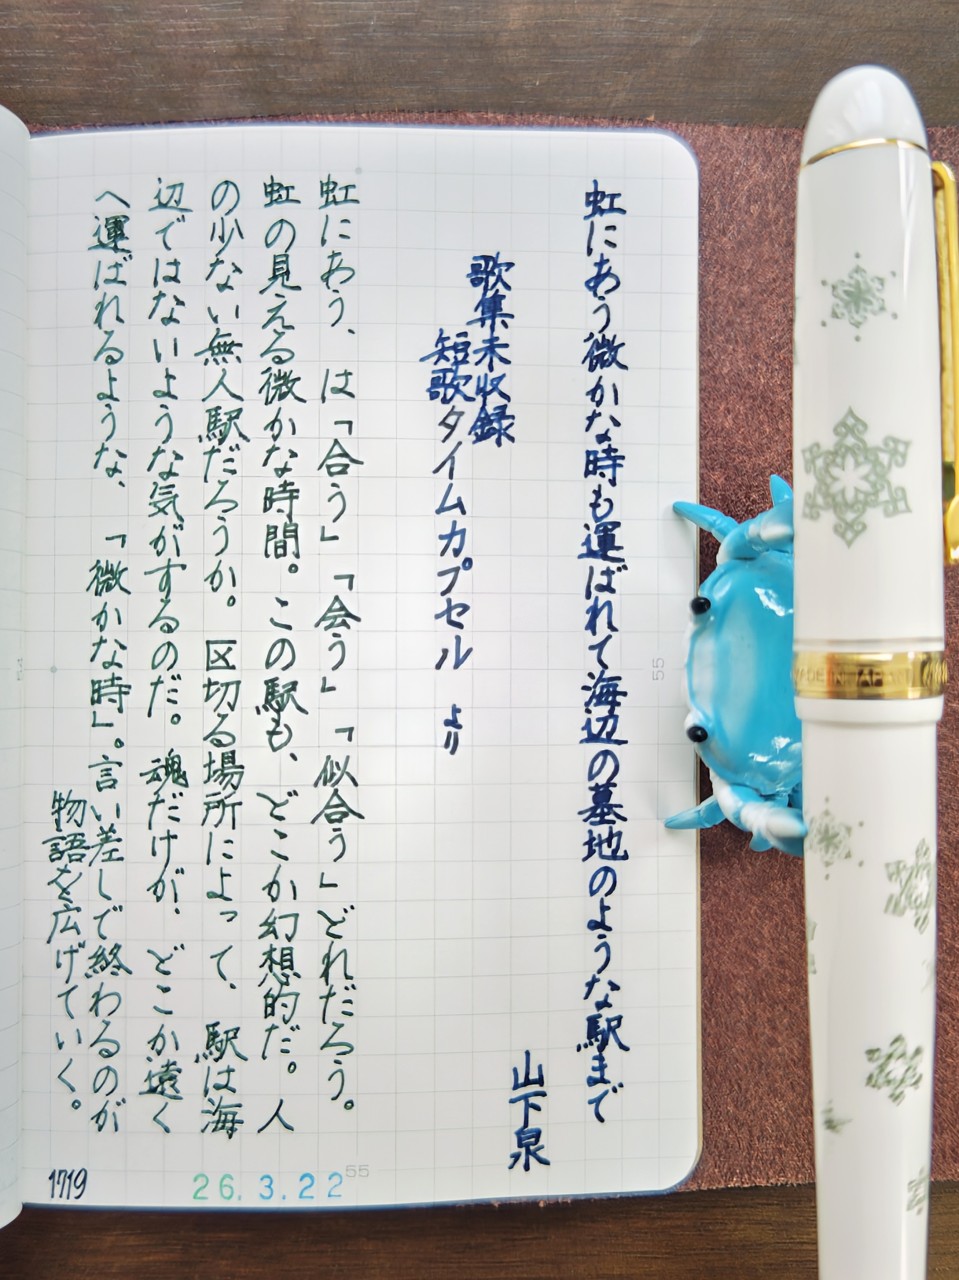 虹にあう微かな時も運ばれて海辺の墓地のような駅まで
山下泉
歌集未収録
短歌タイムカプセル より
虹にあう、は「合う」「会う」「似合う」どれだろう。
虹の見える微かな時間。この駅も、どこか幻想的だ。人
の少ない無人駅だろうか。区切る場所によって、駅は海
辺ではないような気がするのだ。魂だけが、どこか遠く
へ運ばれるような、「微かな時」。言い差しで終わるのが
物語を広げていく。
1719
26.3.22
55
55
54
MADE IN JAPAN